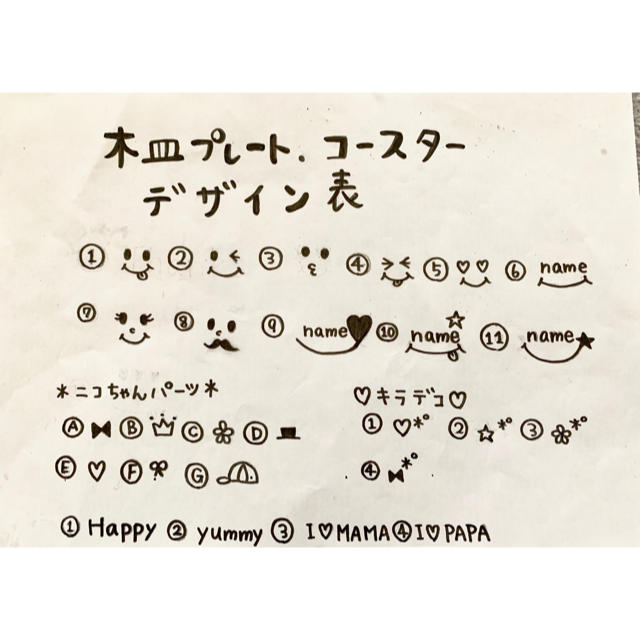 木皿プレート、コースター
デザイン表
① ② ③ ④ ⑤ ⑥ name
⑦ ⑧ ⑨ name♥ ⑩ name☆ ⑪ name★
*ニコちゃんパーツ*
Ⓐ Ⓑ Ⓒ Ⓓ
Ⓔ ♡ Ⓕ Ⓖ
♡キラデコ♡
① ♡*° ② ☆*° ③ *°
④ *°
① Happy ② yummy ③ I♡MAMA ④ I♡PAPA